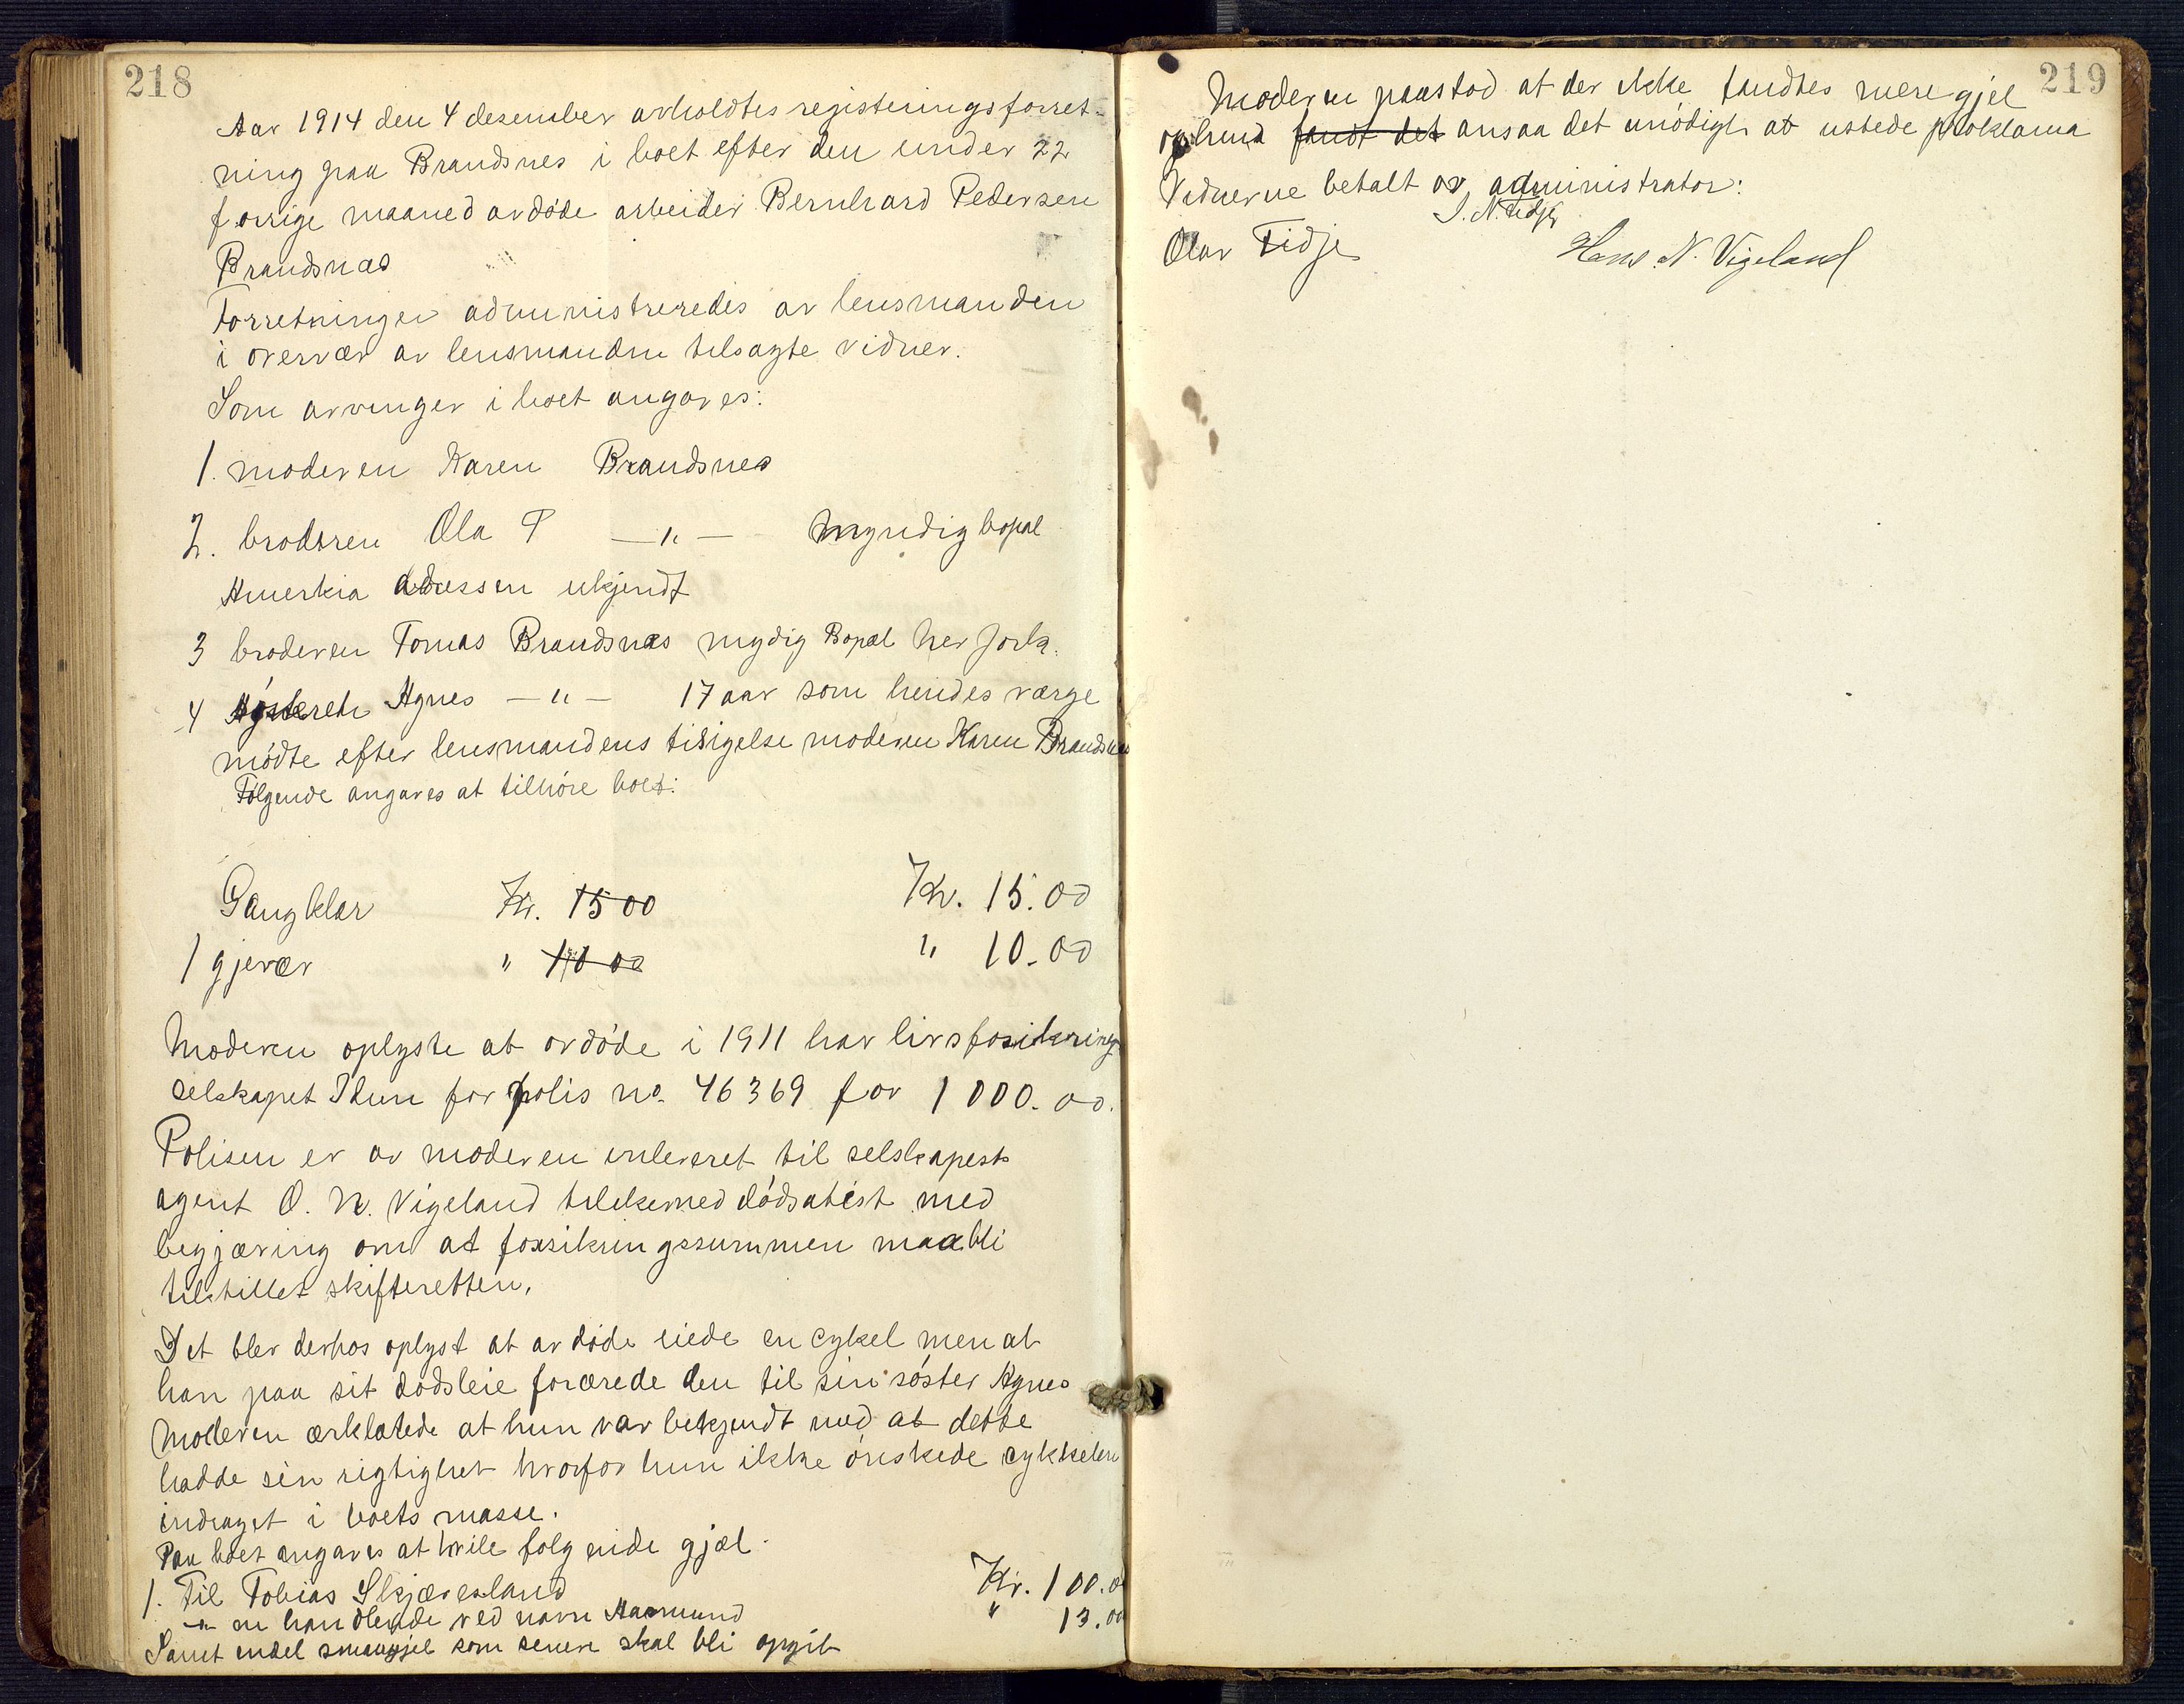 218
Aar 1914 den 4 desember avholdtes registeringsforret-
ning paa Brandsnes i boet efter den under 22
forrige maaned avdøde arbeider Bernhard Pedersen
Brandsnæs
Forretningen administreredes av lensmanden
i overvær av lensmandne tilsagte vidner.
Som arvinger i boet angaves:
1. moderen Karen Brandsnes
2. brodsren Ola P —„— Myndig bopal
Amerkia adressen ukjendt
3 broderen Tomas Brandsnæs mydig Bopæl her
4 Agnes —„— 17 aar som hendes værge
mødte efter lensmandens tilsigelse moderen Karen Brandsnes
Følgende angaves at tilhøre boet:
Gangklær Kr. 1500 Kr. 15.00
1 gjevær „ 10 00 „ 10.00
Moderen oplyste at avdøde i 1911 har livsfosikring
selskapet Idun for polis no. 46369 for 1000.00.
Polisen er av moderen inleveret til selskapets
agent O. N. Vigeland tilikemed dødsatest med
begjæring om at forsikringssummen maa bli
tilstillet skifteretten.
Det blev derhos oplyst at avdøde eiede en cykel men at
han paa sit dødsleie forærede den til sin søster Agnes
Moderen ærklærede at hun var bekjendt med at dette
hadde sin rigtighet hvorfor hun ikke ønskede cykkelen
indraget i boets masse.
Paa boet angaves at hvile følgende gjæl.
1. Til Tobias Skjævesland Kr. 100.00
-„- en handlende ved navn Aasmund „ 13.00
Samt endel smaagjel som senere skal bli opgit
219
Moderen paastod at der ikke fandtes mere gjel
og hun fandt det ansaa det unødigt at ustede proklama
Vidnerne betalt av administrator:
S. N. Tidje
Olav Tidje Hans N. Vigeland